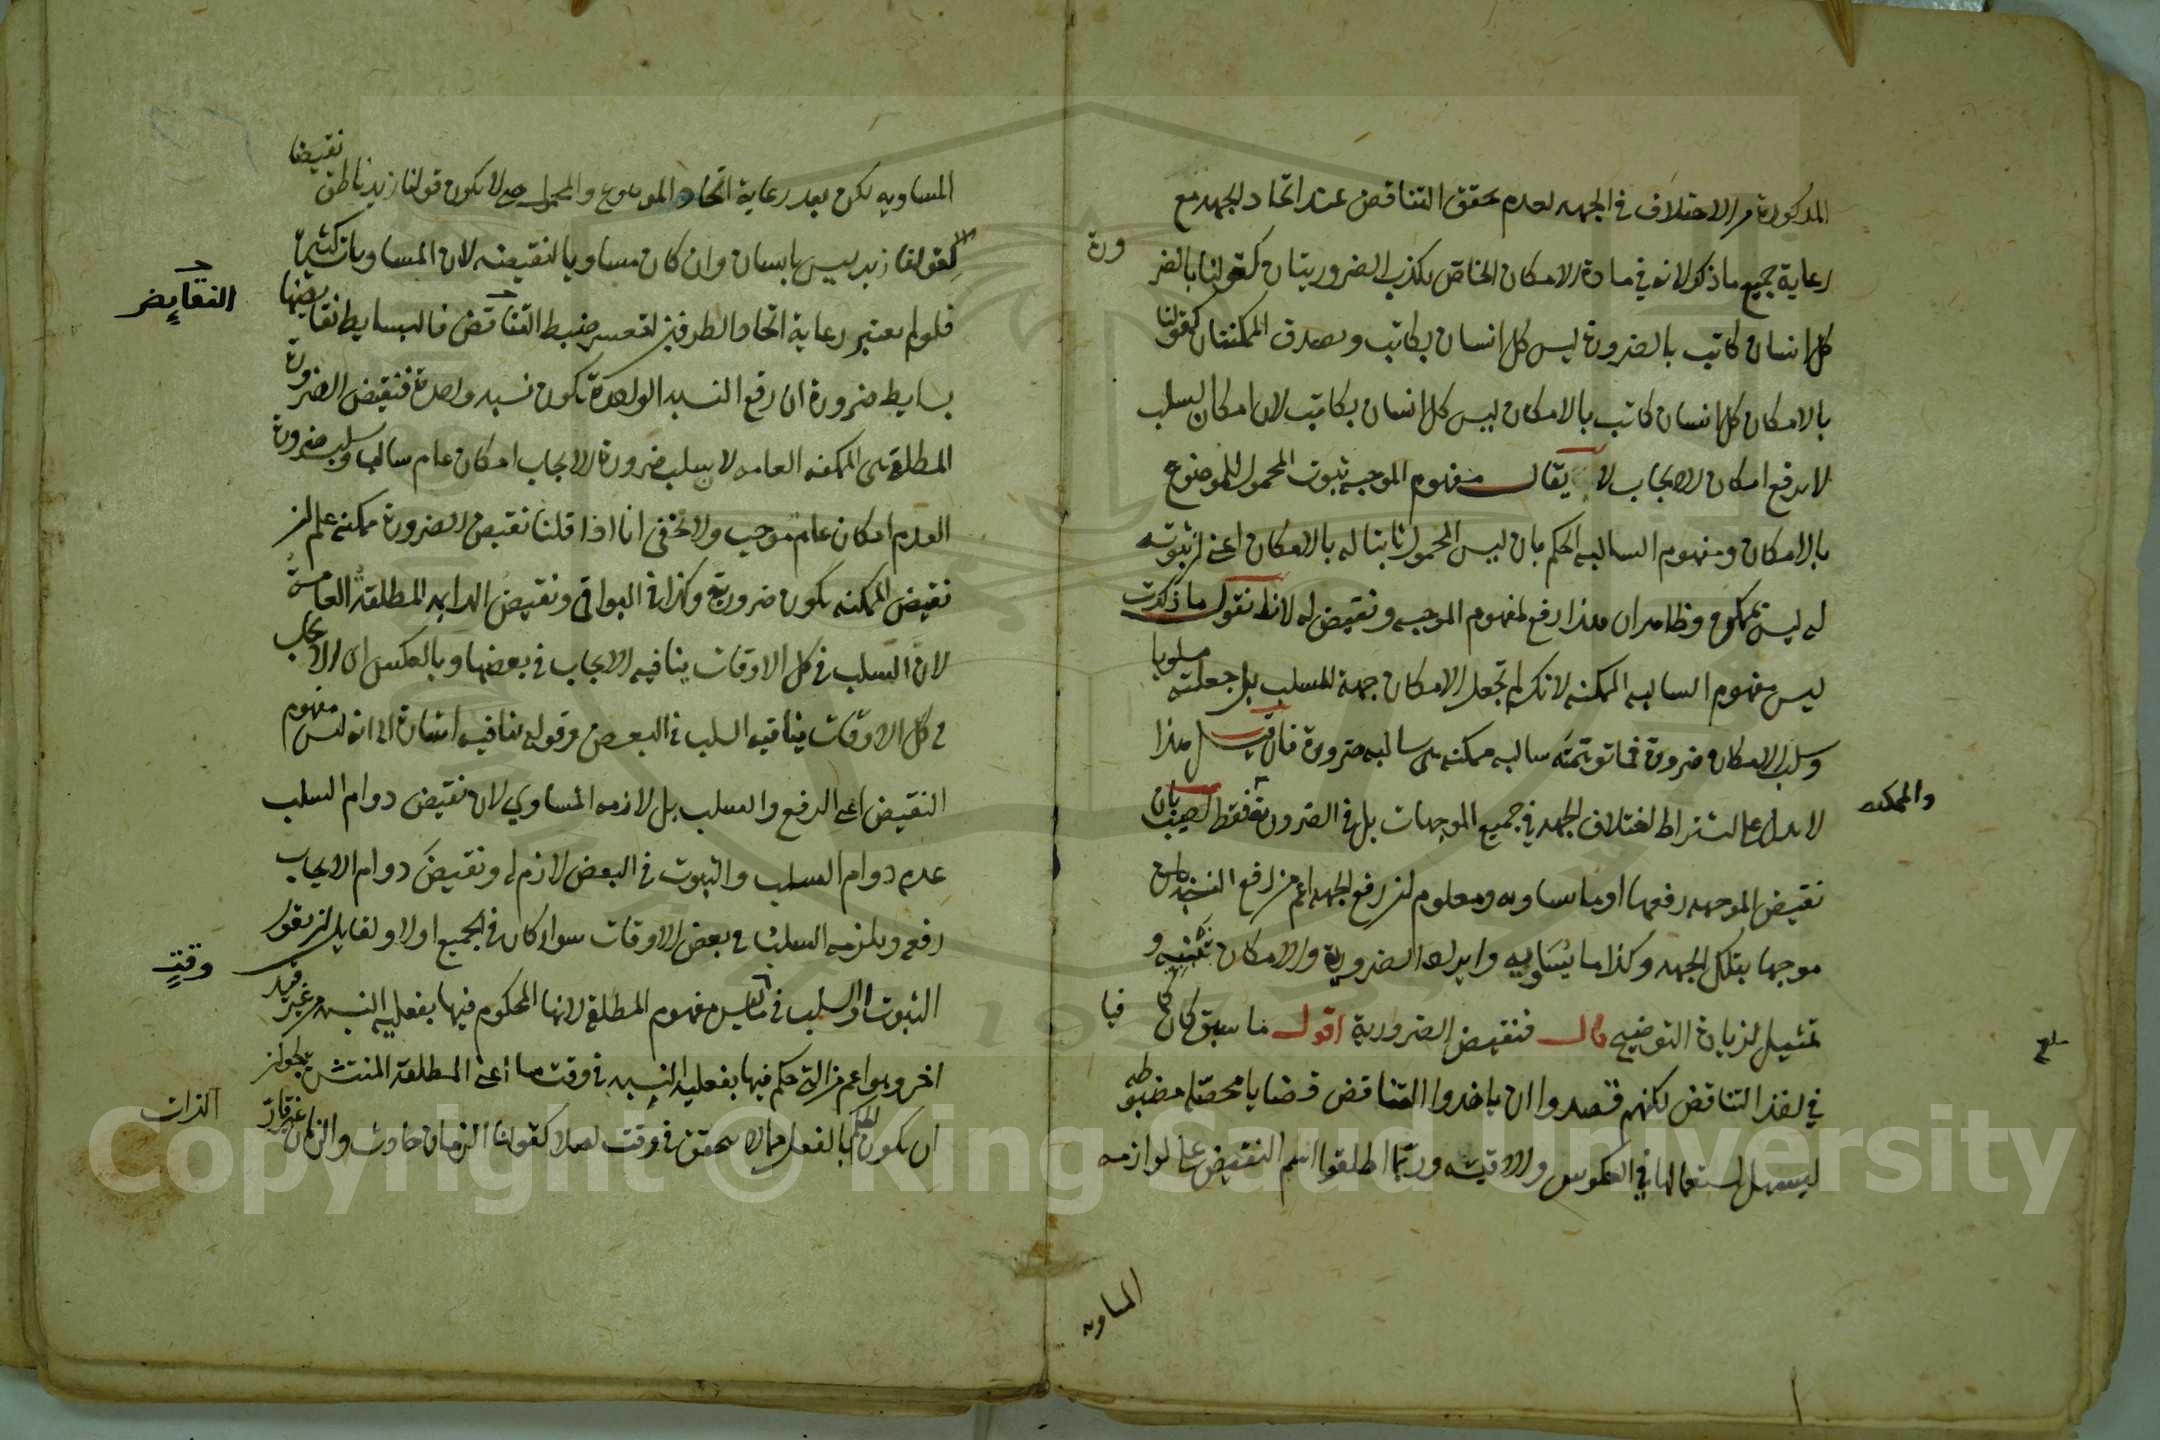 المذكورة من الاختلاف في الجهه لعدم تحقق التناقض عند اتحاد الجهه مع
رعاية جميع ما ذكر لانه في مادة الامكان الخاص يكذب الضروريتان كقولنا بالضر
ورة
كل انسان كاتب بالضرورة ليس كل انسان بكاتب ويصدق الممكنتان كقولنا
بالامكان كل انسان كاتب بالامكان ليس كل انسان بكاتب لان امكان السلب
لا يرفع امكان الايجاب لا يقال مفهوم الموجبه ثبوت المحمول للموضوع
بالامكان ومفهوم السالبه الحكم بان ليس المحمول ثابتا له بالامكان اعنى ان ثبوته
له ليس بممكن وظاهر ان هذا رفع لمفهوم الموجبه ونقيض له لانا نقول ما ذكرت
ليس مفهوم السالبه الممكنه لانك لم تجعل الامكان جهة للسلب بل جعلته مسلوبا
وسلب الامكان ضرورة فما توهمته سالبه ممكنه هى سالبه ضرورة فان قيل هذا
لا يدل على اشتراط اختلاف الجهه في جميع الموجهات بل في الضرورية فقط
والممكنه
نقيض الموجهه رفعها او ما يساويه ومعلوم ان رفع الجهه اعم من رفع
موجها بتلك الجهه وكذا ما يساويه وايراد الضرورية والامكان تنبيه و
تمثيل لزيادة التوضيح قال فنقيض الضرورية اقول ما سبق كان كافيا
في اخذ التناقض لكنهم قصدوا ان ياخذوا التناقض قضايا محصله مضبوطه
ليسهل استعمالها في العكوس والاقيسه وربما اطلقوا اسم النقيض على لوازمه
المساويه
المساويه لكن بعد رعاية اتحاد الموضوع والمحمول حتى لا يكون قولنا زيد ناطق نقيضا
لقولنا زيد ليس بانسان وان كان مساويا لنقيضه لان المساويات كثيرة
فلو لم يعتبر رعاية اتحاد الطرفين لتعسر ضبط التناقض فالبسايط نقايضها
النقايض
بسايط ضرورة ان رفع النسبه الواحدة تكون نسبه واحدة فنقيض الضرورة
المطلقة هى الممكنه العامه لان سلب ضرورة الايجاب امكان عام سالب وسلب ضرورة
العدم امكان عام موجب ولا يخفى انا اذا قلنا نقيض الضرورة ممكنه علم ان
نقيض الممكنه يكون ضرورية وكذا في البواقي ونقيض الدايمه المطلقة العامة
لان السلب في كل الاوقات ينافيه الايجاب في بعضها وبالعكس اى الايجاب
في كل الاوقات ينافيه السلب في البعض وقوله ينافيه اشارة الى انه ليس مفهوم
النقيض اعنى الرفع والسلب بل لازمه المساوي لان نقيض دوام السلب
عدم دوام السلب والثبوت في البعض لازم له ونقيض دوام الايجاب
رفعه ويلزمه السلب في بعض الاوقات سواء كان في الجميع اولا ولقايل ان يقول
الثبوت او السلب في وقت ما ليس مفهوم المطلقة لانها المحكوم فيها بفعلية النسبه من غير قيد
وقت
اخر وهو اعم من التي حكم فيها بفعلية النسبه في وقت ما اعنى المطلقة المنتشرة لجواز
ان يكون الحكم بالفعل مما لا يتحقق في وقت اصلا كقولنا الزمان حادث والزمان غير قار
الذات
Copyright © King Saud University